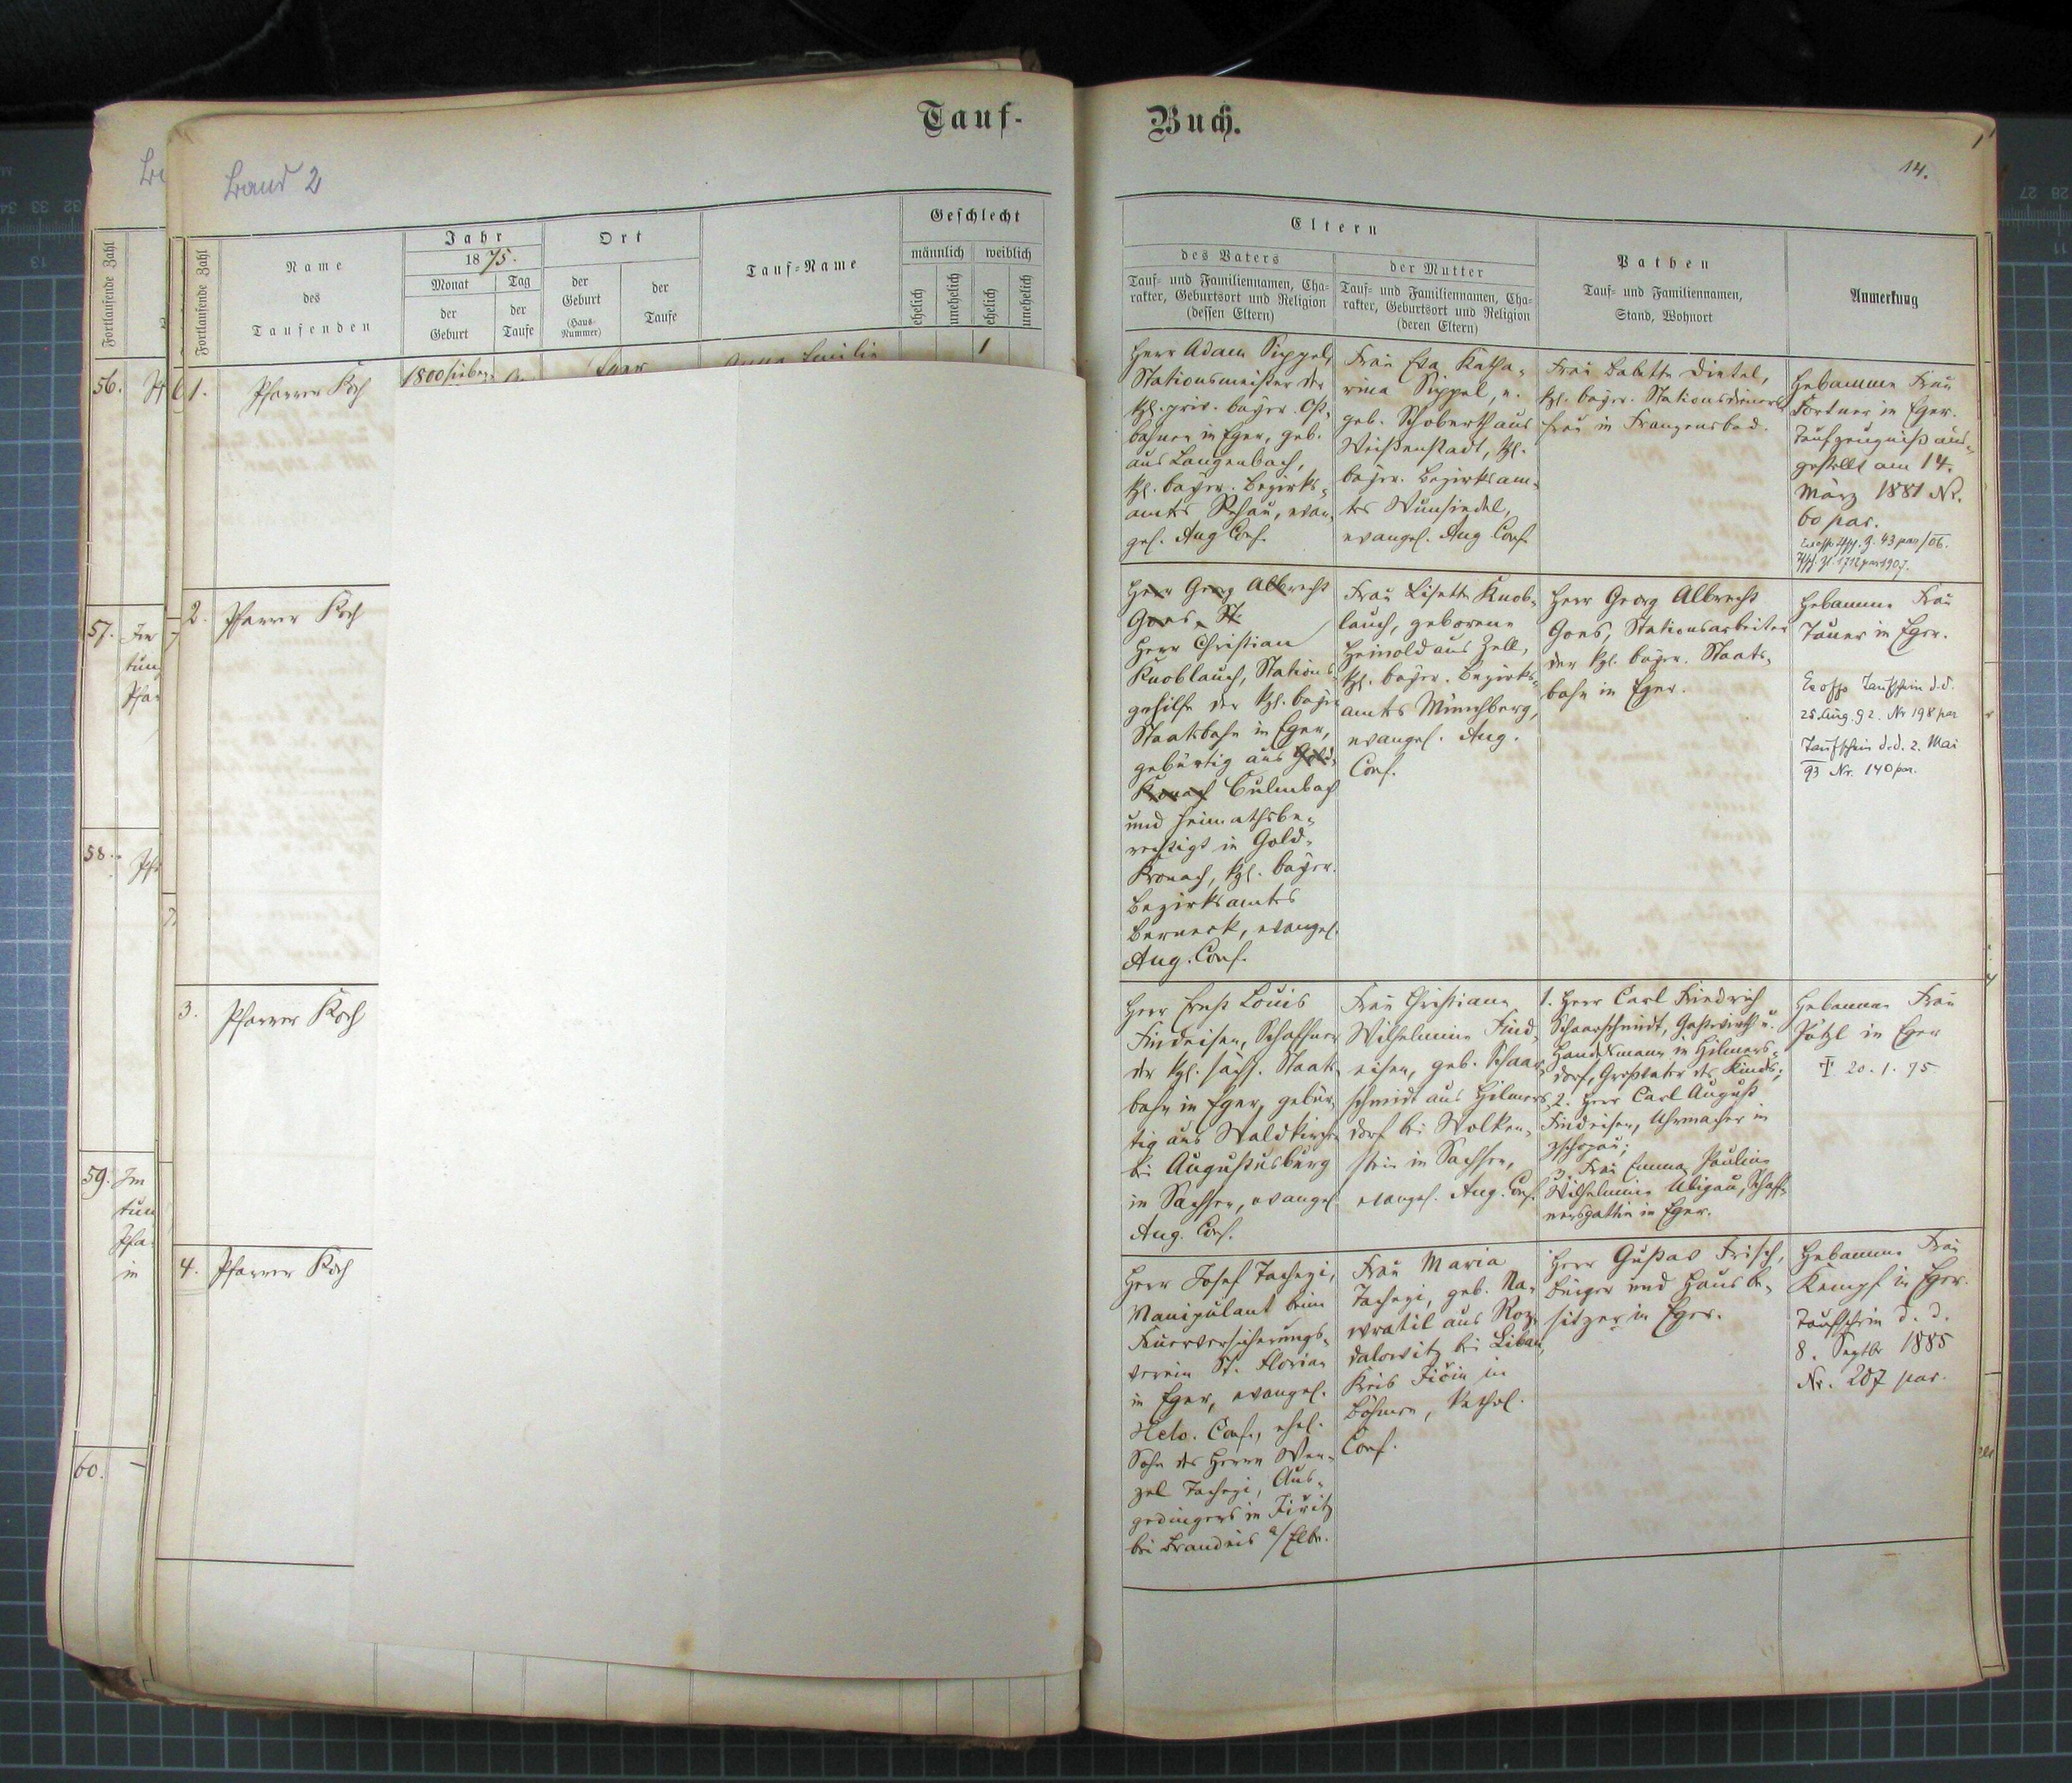 Tauf-
Buch.
14.
Band 2
Fortlaufende Zahl
56.
57.
58.
59.
60.
Fortlaufende Zahl
Name
des
Taufenden
Jahr
1875.
Monat
der
Geburt
Tag
der
Taufe
Ort
der
Geburt
(Haus-
Nummer)
der
Taufe
Tauf-Name
Geschlecht
männlich
weiblich
ehelich
unehelich
ehelich
unehelich
1.
Pfarrer Koch
Eger
Anna Emilie
1
2.
Pfarrer Koch
3.
Pfarrer Koch
4.
Pfarrer Koch
Eltern
des Vaters
Tauf- und Familiennamen, Cha-
rakter, Geburtsort und Religion
(dessen Eltern)
der Mutter
Tauf- und Familiennamen, Cha-
rakter, Geburtsort und Religion
(deren Eltern)
Pathen
Tauf- und Familiennamen,
Stand, Wohnort
Anmerkung
Herr Adam Sippel,
Stationsmeister der
kgl. priv. bayer. Ost-
bahnen in Eger, geb.
aus Langenbach,
kgl. bayer. Bezirks-
amtes Rehau, evan-
gel. Aug Conf.
Frau Eva Katha-
rina Sippel,
geb. Schoberth aus
Weißenstadt, kgl.
bayer. Bezirksam-
tes Wunsiedel,
evangel. Aug. Conf.
Frau Babette Dietel,
kgl. bayer. Stationsdieners
frau in Franzensbad.
Hebamme Frau
Fortner in Eger.
Taufzeugniß aus-
gestellt am 14.
März 1881 Nr.
60 par.
Herr Georg Albrecht
Goes, St.
Herr Christian
Knoblauch, Stations-
gehilfe der kgl. bayer
Staatsbahn in Eger,
gebürtig aus Gold-
Kronach Culmbach
und heimathsbe-
rechtigt in Gold-
Kronach, kgl. bayer.
Bezirksamtes
Berneck, evangel.
Aug. Conf.
Frau Lisette Knob-
lauch, geborene
Heinold aus Zell,
kgl. bayer. Bezirks-
amtes Münchberg,
evangel. Aug.
Conf.
Herr Georg Albrecht
Goes, Stationsarbeiter
der kgl. bayer. Staats-
bahn in Eger.
Hebamme Frau
in Eger.
Ex offo Taufschein d.d.
25. Aug. 92. Nr 198 par
Taufschein d.d. 2. Mai
93 Nr. 140 par.
Herr Ernst Louis
Findeisen, Schaffner
der kgl. sächs. Staats-
bahn in Eger, gebür-
tig aus Waldkirchen
bei Augustusburg
in Sachsen, evangel.
Aug. Conf.
Frau Christiane
Wilhelmine Find-
eisen, geb. Schaar-
schmidt aus Hilmers-
dorf bei Wolken-
stein in Sachsen,
evangel. Aug. Conf.
1. Herr Carl Friedrich
Schaarschmidt, Gastwirth u.
Handelsmann in Hilmers-
dorf, Großvater des Kindes;
2. Herr Carl August
Findeisen, Uhrmacher in
Zschopau;
3. Frau Emma Pauline
Wilhelmine Schaff-
nersgattin in Eger.
Hebamme Frau
Pötzl in Eger
20. 1. 75
Herr Josef Tachezi,
Manipulant beim
Feuerversicherungs-
verein St. Florian
in Eger, evangel.
Helv. Conf., ehel.
Sohn des Herrn Wen-
zel Tachezi, Aus-
gedingers in Jiřitz
bei Brandeis a/Elbe.
Frau Maria
Tachezi, geb. Na-
wratil aus Roz-
dalowitz bei Liban,
Kreis Jičin in
Böhmen, kathol.
Conf.
Herr Gustav Frisch,
Bürger und Hausbe-
sitzer in Eger.
Hebamme Frau
Kempf in Eger.
Taufschein d. d.
8. Septbr 1885
Nr. 207 par.